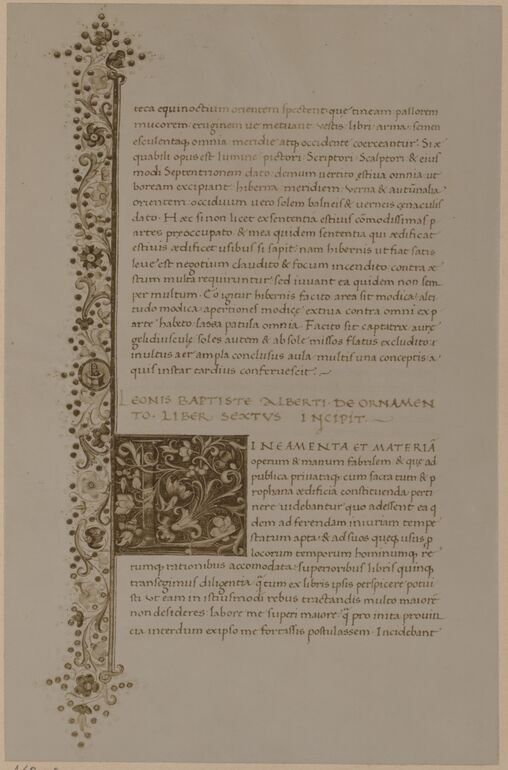 teca equinoctium orientem spectent que tineam pallorem
mucorem eruginem ve metuant vestis libri arma semen
esculentaq omnia meridie atq occidente coerceantur. Si æ
quabili opus est lumine pictori Scriptori Scalptori & eius
modi Septentrionem dato demum vertito estiva omnia ut
boream excipiant hiberna meridiem verna & autūnalia
orientem occiduum vero solem balneis & verneis cenaculis
dato. Hæc si non licet ex sententia estivis cōmodissimas p
artes preoccupato & mea quidem sententia qui ædificat
estivis ædificet usibus si sapit. nam hibernis ut fiat satis
leve est negotium claudito & focum incendito contra æ
stum multa requiruntur sed iuvant ea quidem non sem
per multum. Co igitur hibernis facito area sit modica alti
tudo modica apertiones modice extiva contra omni ex p
arte habeto laxa patula omnia. Facito sit captatrix aure
gelidiuscule soles autem & ab sole missos flatus excludito. i
nvitus aer ampla conclusus aula multis una conceptis a
quis instat tardius confervescit.
LEONIS BAPTISTE ALBERTI DE ORNAMEN
TO LIBER SEXTVS INCIPIT
LINEAMENTA ET MATERIĀ
operum & manum fabrilem & que ad
publica privataq cum sacra tum & p
rophana ædificia constituenda perti
nere videbantur quo adessent ea q
dem ad ferendam iniuriam tempe
statum apta & ad suos queq usus p
locorum temporum hominumq re
rumq rationibus accomodata superioribus libris quinq
transegimus diligentia q̄ tum ex libris ipsis perspicere potui
sti ut eam in istiusmodi rebus tractandis multo maiorē
non desideres labore me superi maiore q̄ pro inita provin
cia interdum ex ipso me fortassis postulassem. Incidebant